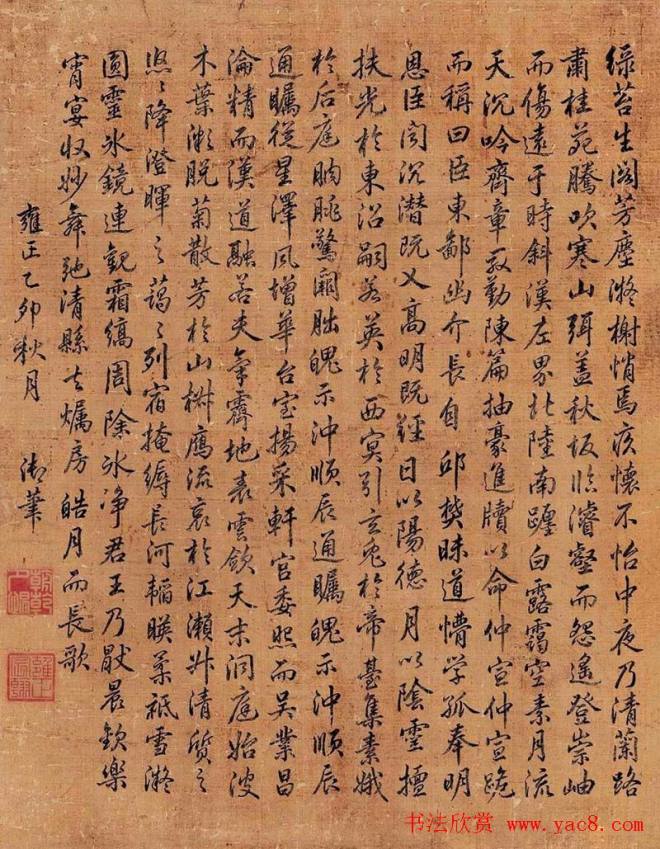 綠苔生閣芳塵凝榭悄焉疚懷不怡中夜乃清蘭路
肅桂苑騰吹寒山弭蓋秋坂臨濬壑而怨遙登崇岫
而傷遠于時斜漢左界北陸南躔白露靄空素月流
天沉吟齊章殷勤陳篇抽豪進牘以命仲宣仲宣跪
而稱曰臣東鄙幽介長自邱樊昧道懵學孤奉明
恩臣聞沉潛既乂高明既經日以陽德月以陰靈擅
扶光於東沼嗣若英於西冥引玄兔於帝臺集素娥
於后庭朒朓驚闕朏魄示沖順辰通矚魄示沖順辰
通矚從星澤風增華台室揚采軒官委照而吳業昌
淪精而漢道融若夫氣霽地表雲斂天末洞庭始波
木葉漸脫菊散芳於山椒鴈流哀於江瀨升清質之
悠〻降澄暉之藹〻列宿掩縟長河韜暎柔祇雪凝
圓靈水鏡連觀霜縞周除冰淨君王乃厭晨歡樂
宵宴收妙舞弛清縣去燭房皓月而長歌
雍正乙卯秋月 御筆
书法欣赏 www.yac8.com